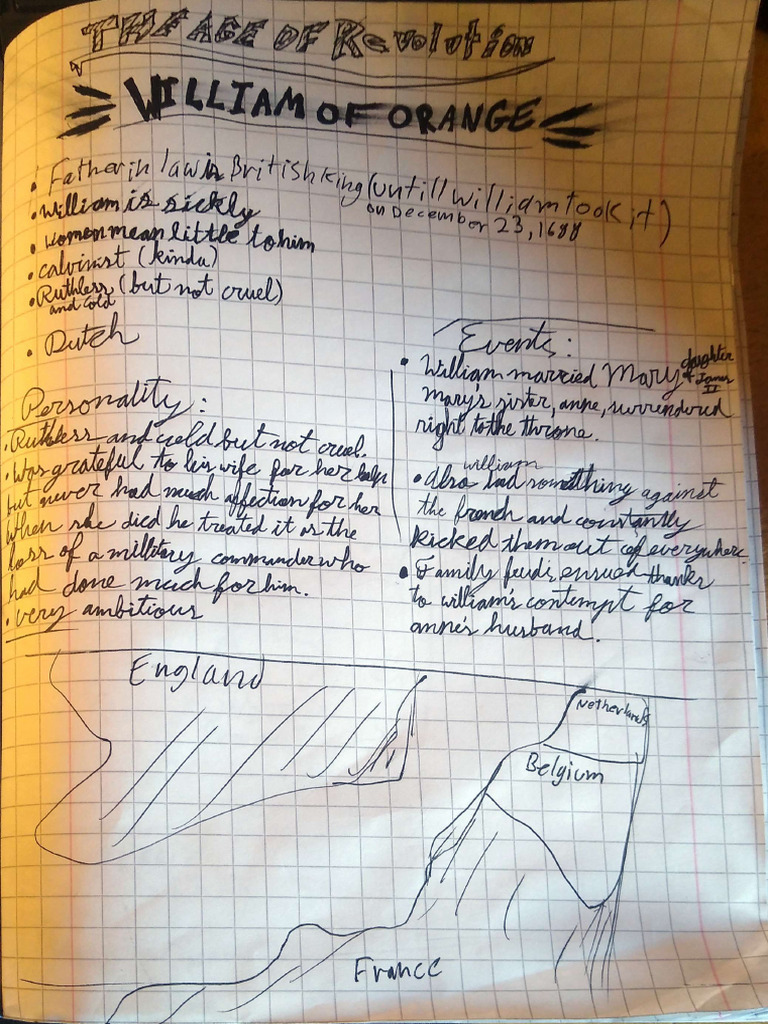 THE AGE OF Revolution
WILLIAM OF ORANGE
• Father in law is British king (untill william took it)
on December 23, 1688
• William is sickly
• women mean little to him
• calvinist (kinda)
• Ruthless (but not cruel)
and cold
• Dutch
Personality:
• Ruthless and cold but not cruel.
• Was grateful to his wife for her help
but never had much affection for her
When she died he treated it as the
loss of a millitary commander who
had done much for him.
• very ambitious
Events:
• William married Mary daughter
of James
II
Mary's sister, anne, surrendered
right to the throne.
william
• Also had something against
the french and constantly
kicked them out of everywhere.
• Family feuds ensued thanks
to william's contempt for
anne's husband.
England
Netherlands
Belgium
France